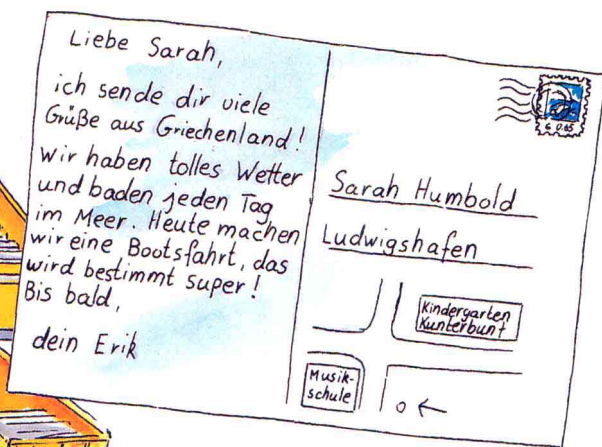 Liebe Sarah,
ich sende dir viele
Grüße aus Griechenland!
Wir haben tolles Wetter
und baden jeden Tag
im Meer. Heute machen
wir eine Bootsfahrt, das
wird bestimmt super!
Bis bald,
dein Erik
€ 0.65
Sarah Humbold
Ludwigshafen
Kindergarten
Kunterbunt
Musik-
schule